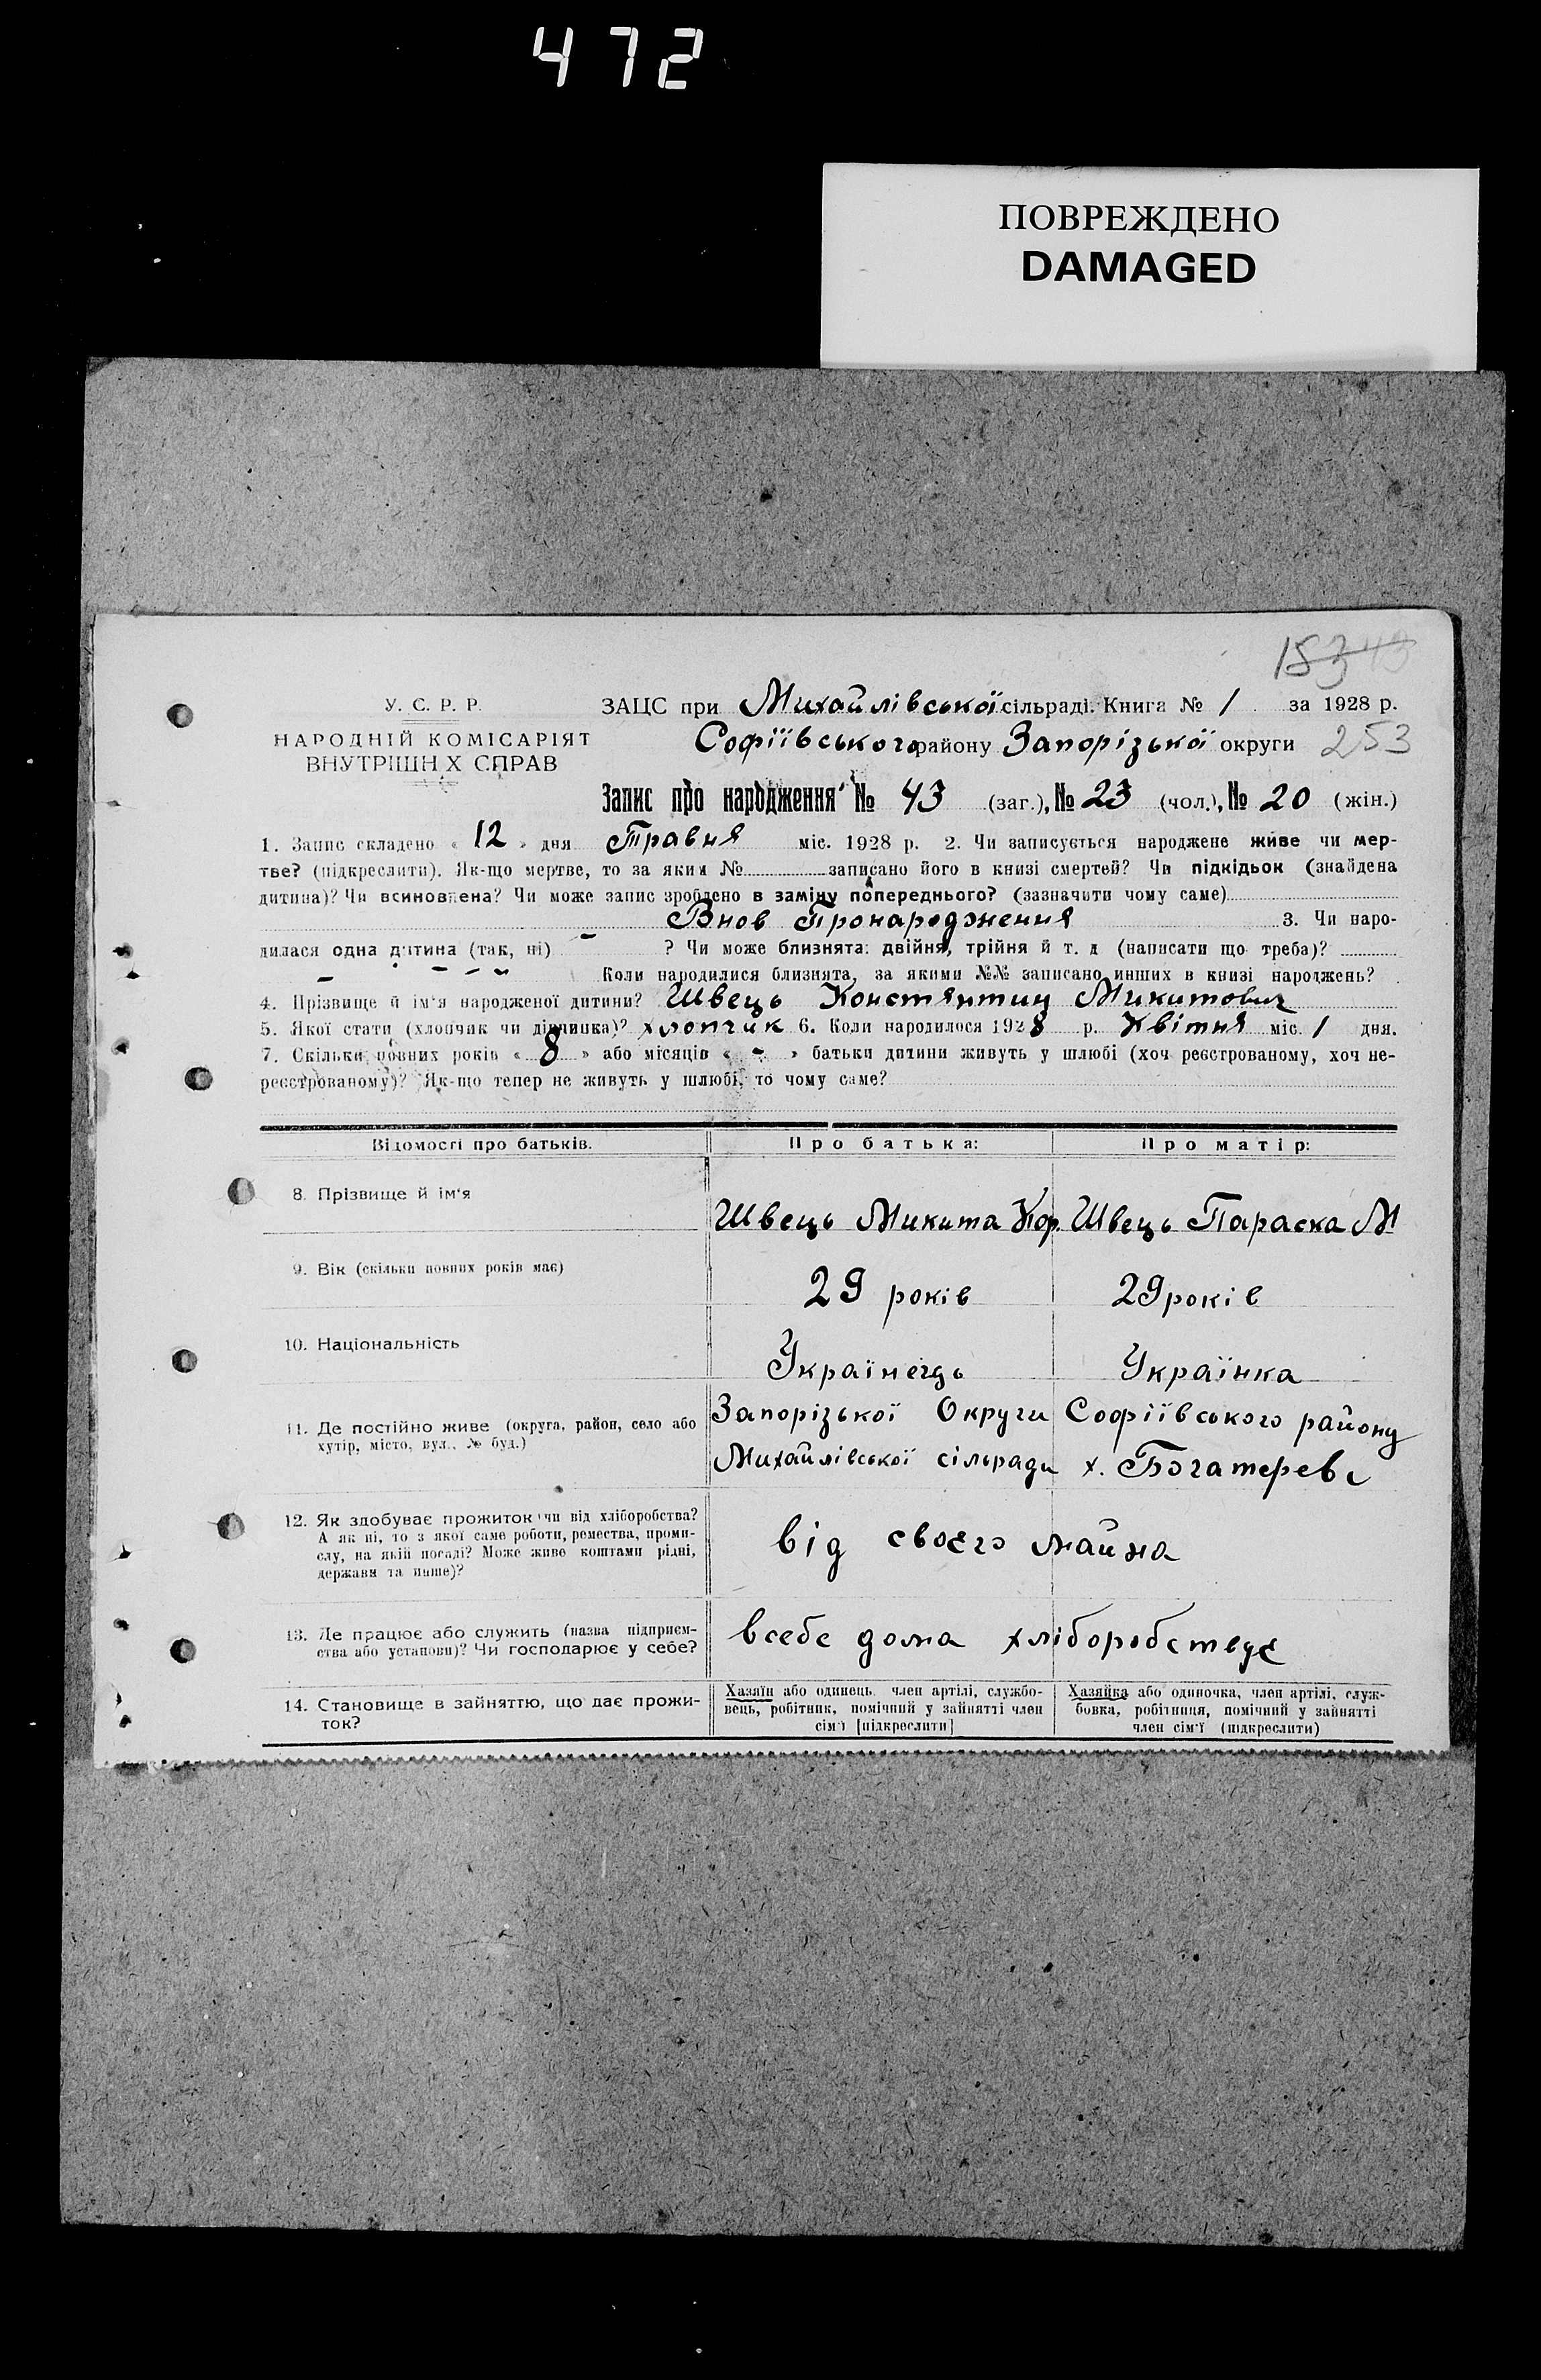 472
ПОВРЕЖДЕНО
DAMAGED
153
У. С. Р. Р.
НАРОДНІЙ КОМІСАРІЯТ
ВНУТРІШН Х СПРАВ
ЗАЦС при Михайлівської сільраді. Книга № 1 за 1928 р.
Софіївського району Запорізької округи 253
Запис про народження № 43 (заг.), № 23 (чол.), № 20 (жін.)
1. Запис складено « 12 » дня Травня міс. 1928 р. 2. Чи записується народжене живе чи мер-
тве? (підкреслити). Як-що мертве, то за яким № записано його в книзі смертей? Чи підкідьок (знайдена
дитина)? Чи всиновлена? Чи може запис зроблено в заміну попереднього? (зазначити чому саме)
Внов Пронародження 3. Чи наро-
дилася одна дитина (так, ні) – ? Чи може близнята: двійня, трійня й т. д (написати що треба)?
– - - - Коли народилися близнята, за якими №№ записано инших в книзі народжень?
4. Прізвище й ім'я народженої дитини? Швець Константин Микитович
5. Якої стати (хлопчик чи дівчинка)? хлопчик 6. Коли народилося 1928 р. Квітня міс. 1 дня.
7. Скільки повних років « 8 » або місяців « - » батьки дитини живуть у шлюбі (хоч реєстрованому, хоч не-
реєстрованому)? Як-що тепер не живуть у шлюбі, то чому саме?
Відомості про батьків. Про батька: Про матір:
8. Прізвище й ім'я
Швець Микита Кор. Швець Параска М
9. Вік (скільки повних років має)
29 років 29 років
10. Національність
Українець Українка
11. Де постійно живе (округа, район, село або
хутір, місто, вул., № буд.)
Запорізької Округи Софіївського району
Михайлівської сільради х. Богатерев
12. Як здобуває прожиток чи від хліборобства?
А як ні, то з якої саме роботи, ремества, проми-
слу, на якій посаді? Може живе коштами рідні,
держави та инше)?
від своєго майна
13. Де працює або служить (назва підприєм-
ства або установи)? Чи господарює у себе?
всебе дома хліборобствує
14. Становище в зайняттю, що дає прожи-
ток?
Хазяїн або одинець, член артілі, службо-
вець, робітник, помічний у зайнятті член
сім'ї [підкреслити]
Хазяйка або одиночка, член артілі, служ-
бовка, робітниця, помічний у зайнятті
член сім'ї (підкреслити)